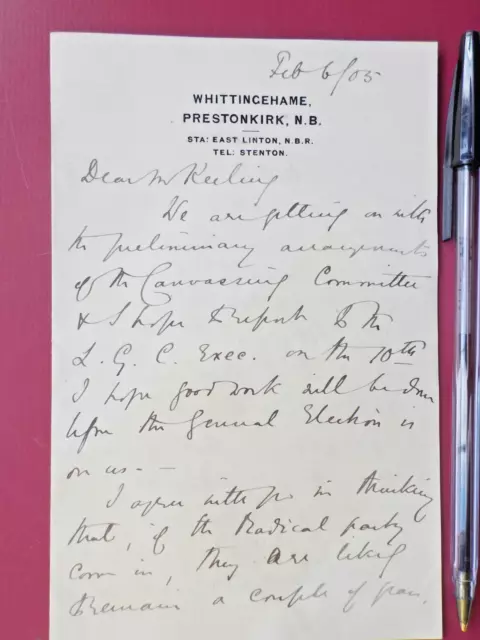 Feb 6/05
WHITTINGEHAME,
PRESTONKIRK, N.B.
STA: EAST LINTON, N.B.R.
TEL: STENTON.
Dear Mr Keeling
We are getting on with
the preliminary arrangements
of the Canvassing Committee
& I hope to report to the
L. G. C. Exec. on the 10th
I hope good work will be done
before the General Election is
on us - —
I agree with you in thinking
that, if the Radical party
come in, they are likely
to remain a couple of years.